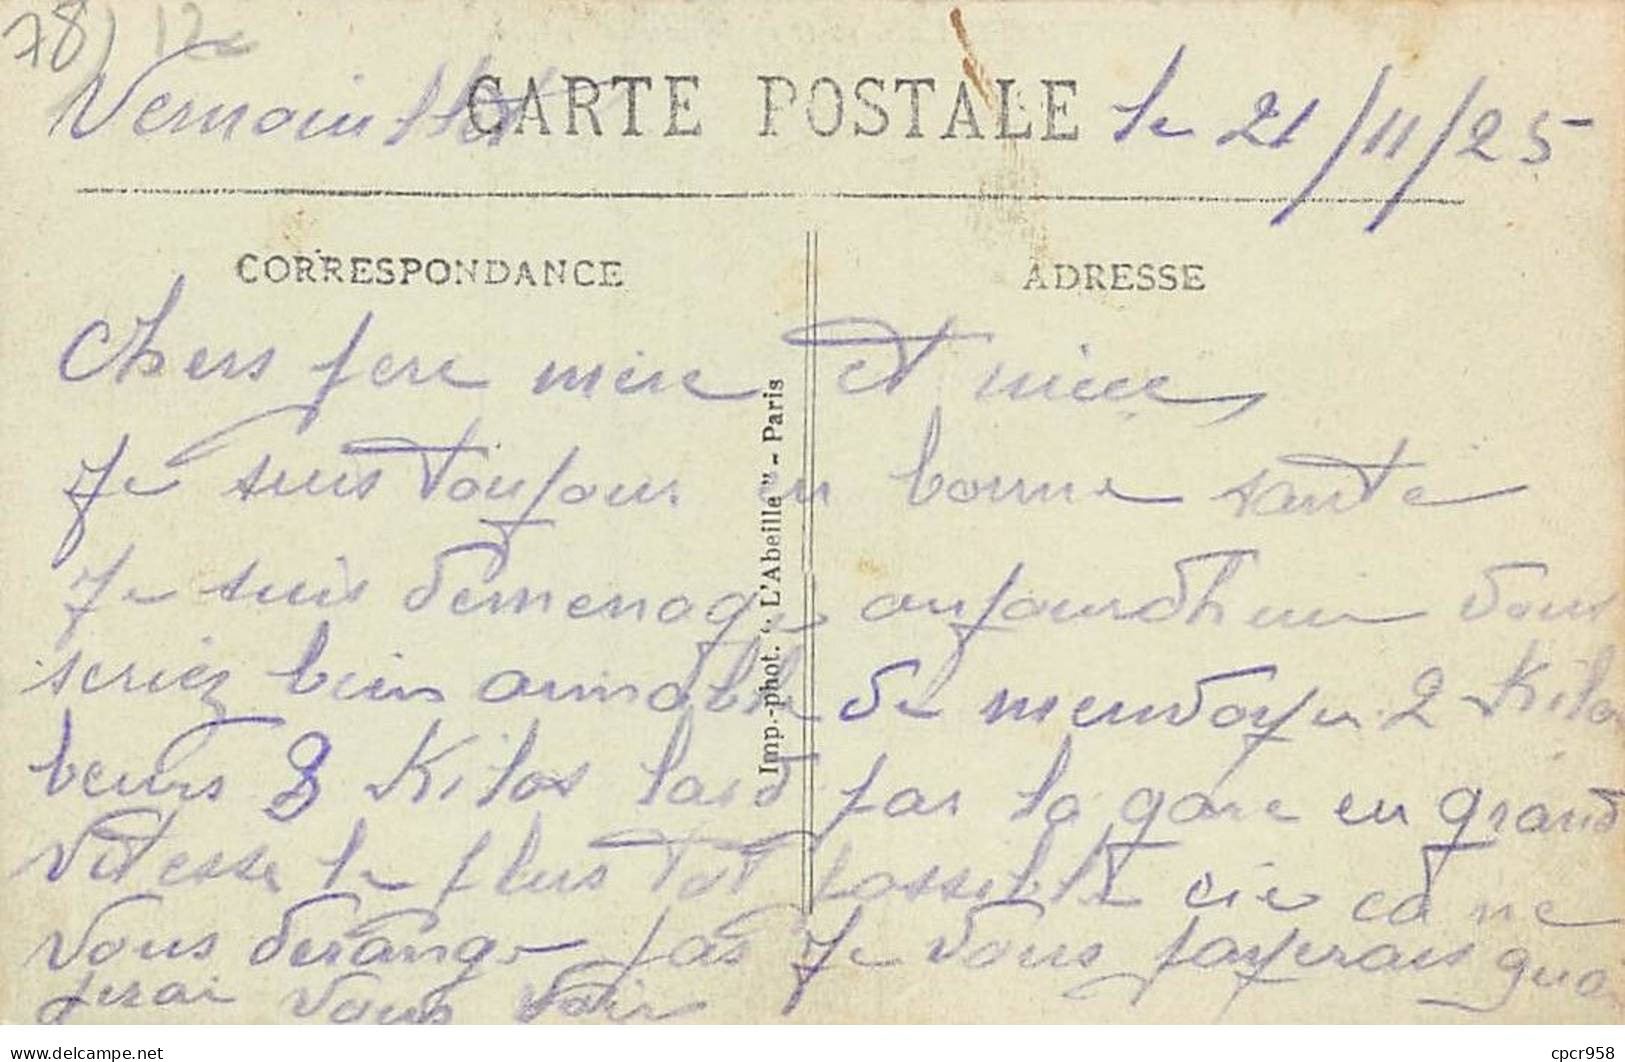 78) 12
Vernouillet CARTE POSTALE le 21/11/25
CORRESPONDANCE ADRESSE
Chers pere mere et niece,
Je suis toujour en bonne santé
Je suis demenage aujourdhuie vous
seriez bien aimable de mendoyer 2 Kilos
beurs 3 Kilos lard par la gare en grand
vitesse le plus tot possible cie ca ne
vous derange pas Je vous payerais quan
jerai vous voir
Imp.-phot. "L'Abeille" - Paris
delcampe.net
cpcr958